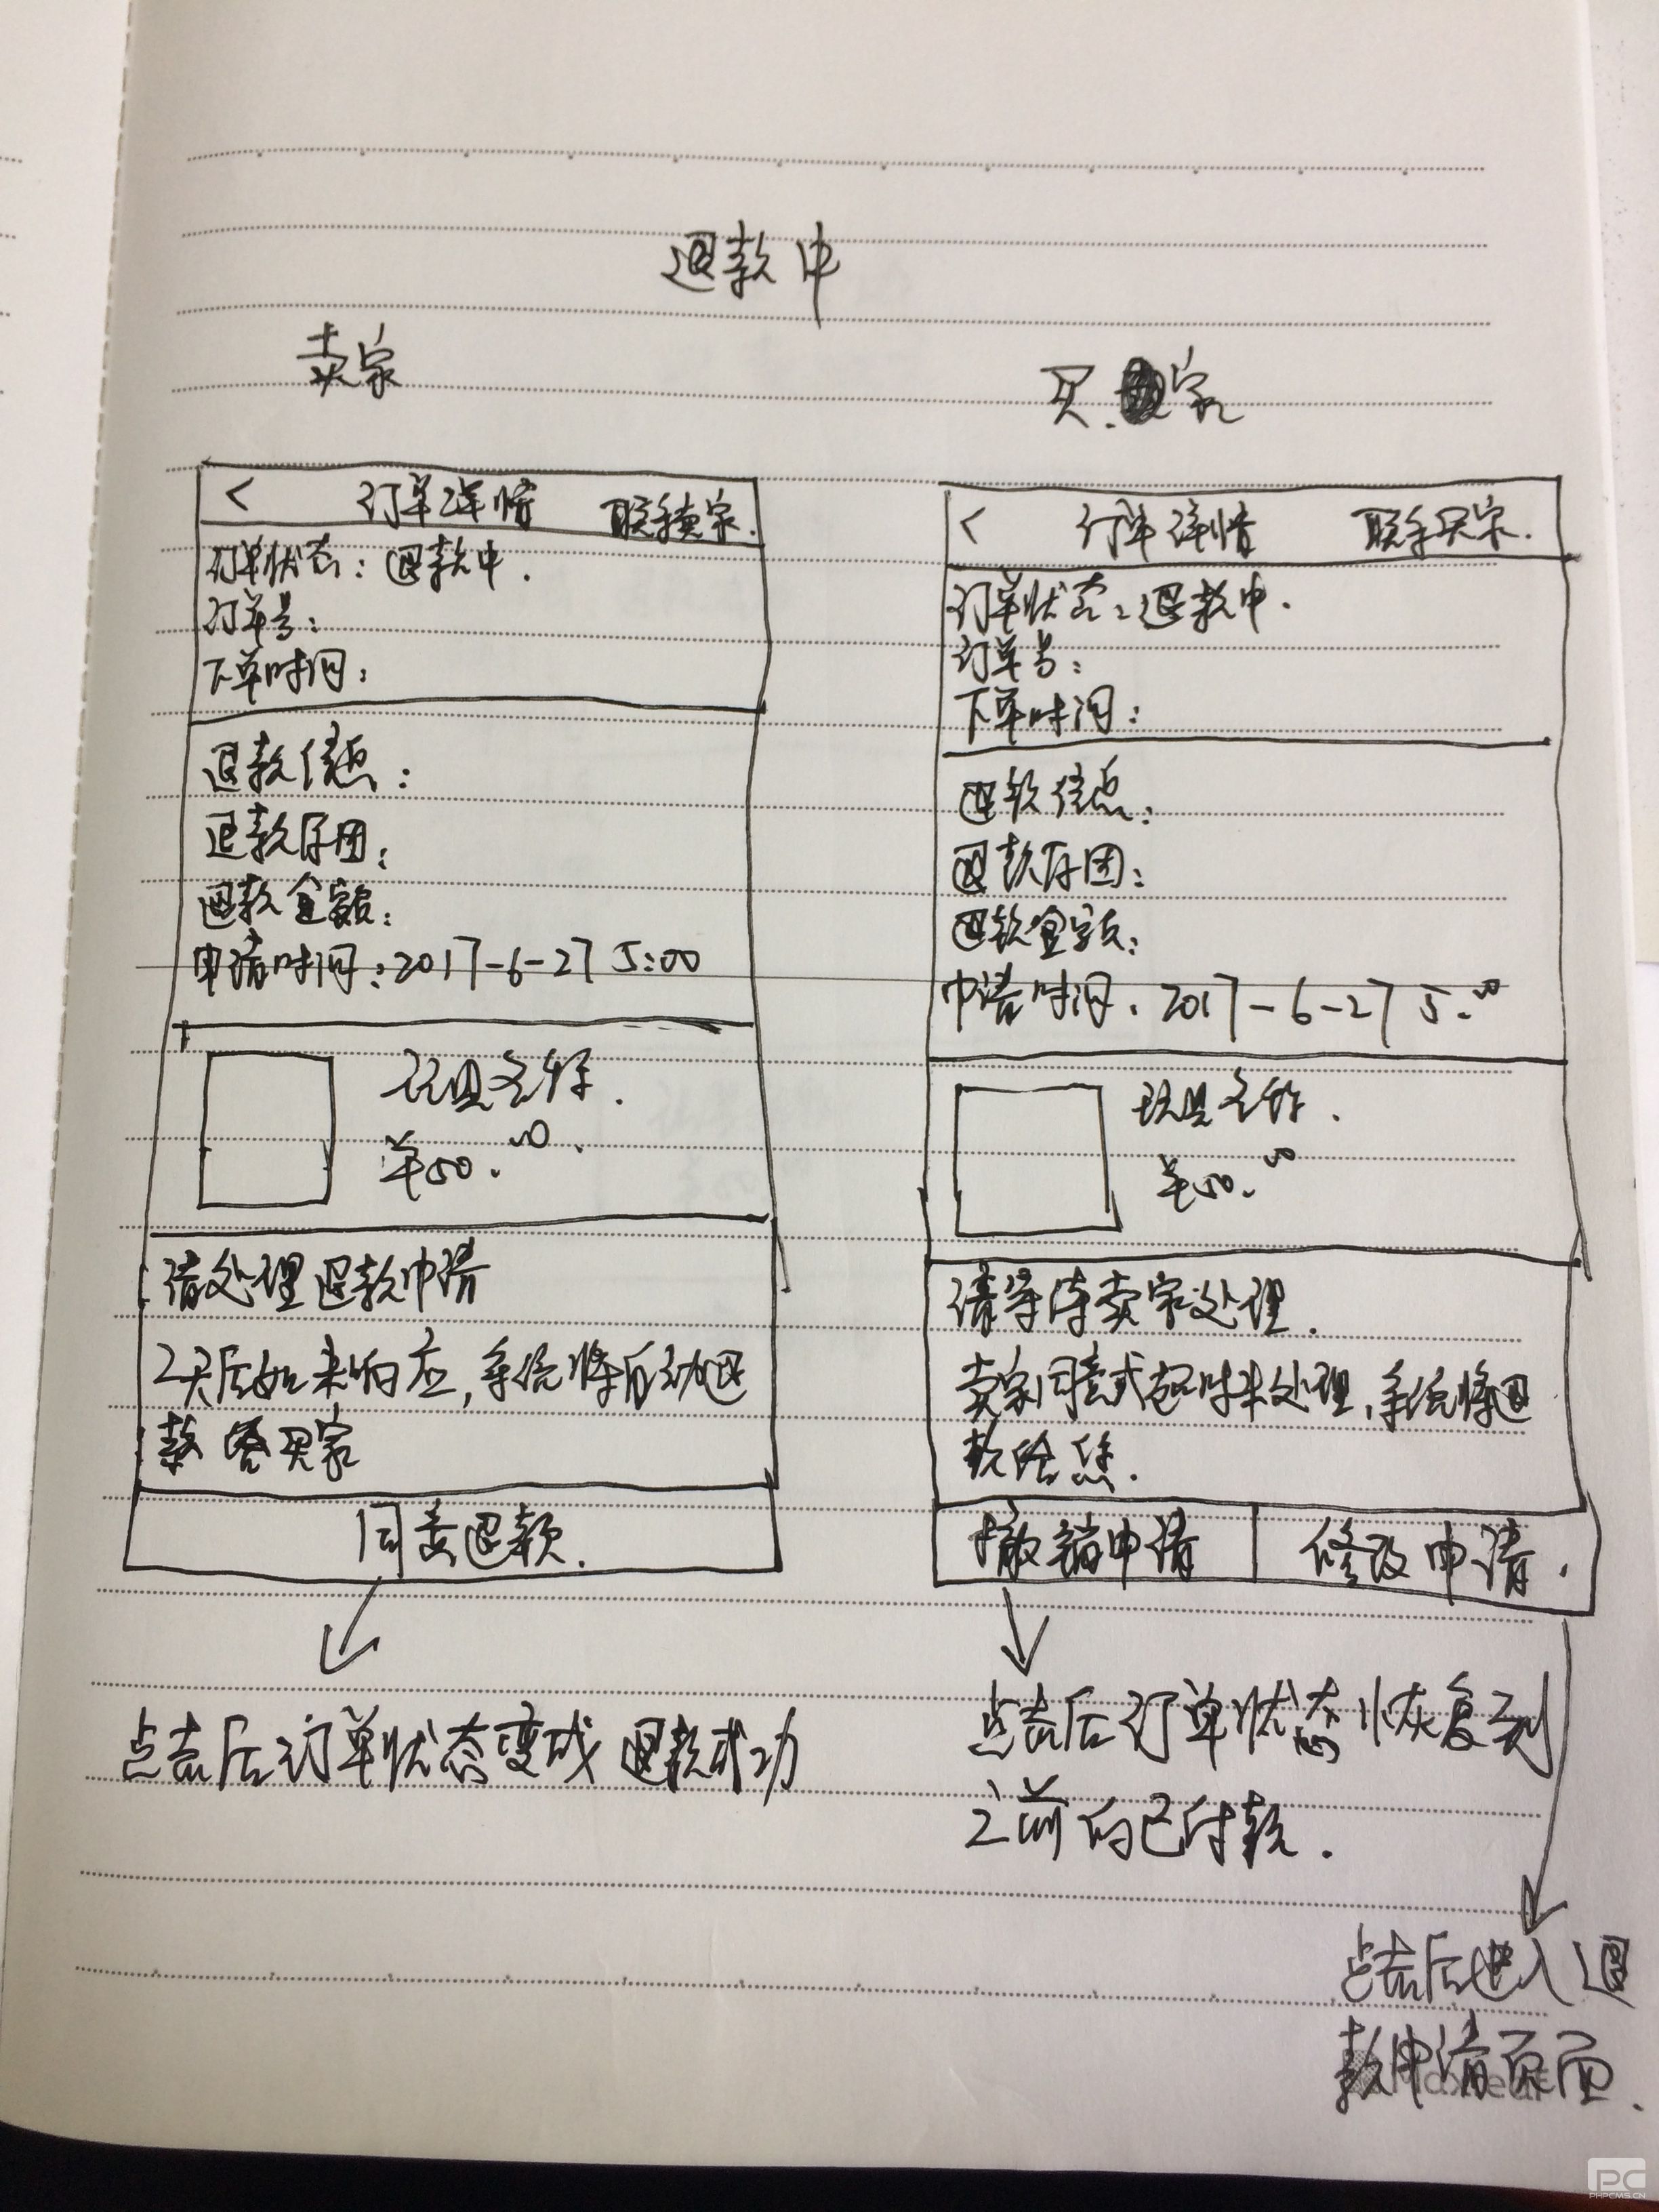 退款中
卖家
买家
< 订单详情 联系卖家.
订单状态：退款中.
订单号：
下单时间：
退款信息：
退款原因：
退款金额：
申请时间：2017-6-27 5:00
玩具名称.
¥50.00.
请处理退款申请
2天后如未响应,系统将自动退
款给买家
同意退款.
点击后订单状态变成退款成功
< 订单详情 联系买家.
订单状态：退款中.
订单号：
下单时间：
退款信息：
退款原因：
退款金额：
申请时间. 2017-6-27 5.00
玩具名称.
¥50.00
请等待卖家处理.
卖家同意或超时未处理,系统将退
款给您.
撤销申请 修改申请.
点击后订单状态恢复到
之前的已付款.
点击后进入退
款申请页面.
PC
PHPCMS.CN